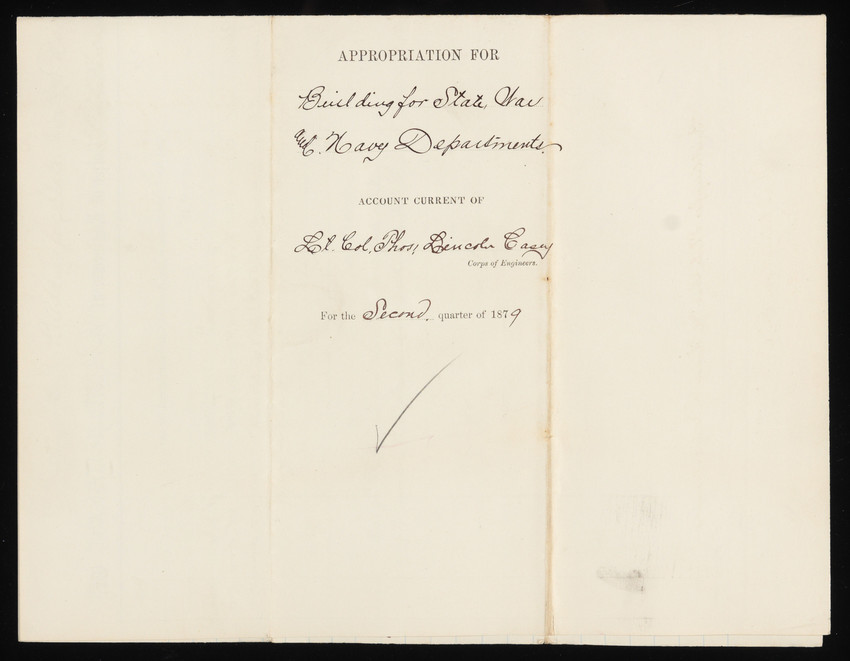 APPROPRIATION FOR
Building for State, War
and. Navy Departments.
ACCOUNT CURRENT OF
Lt. Col. Thos; Lincoln Casey
Corps of Engineers.
For the Second. quarter of 1879